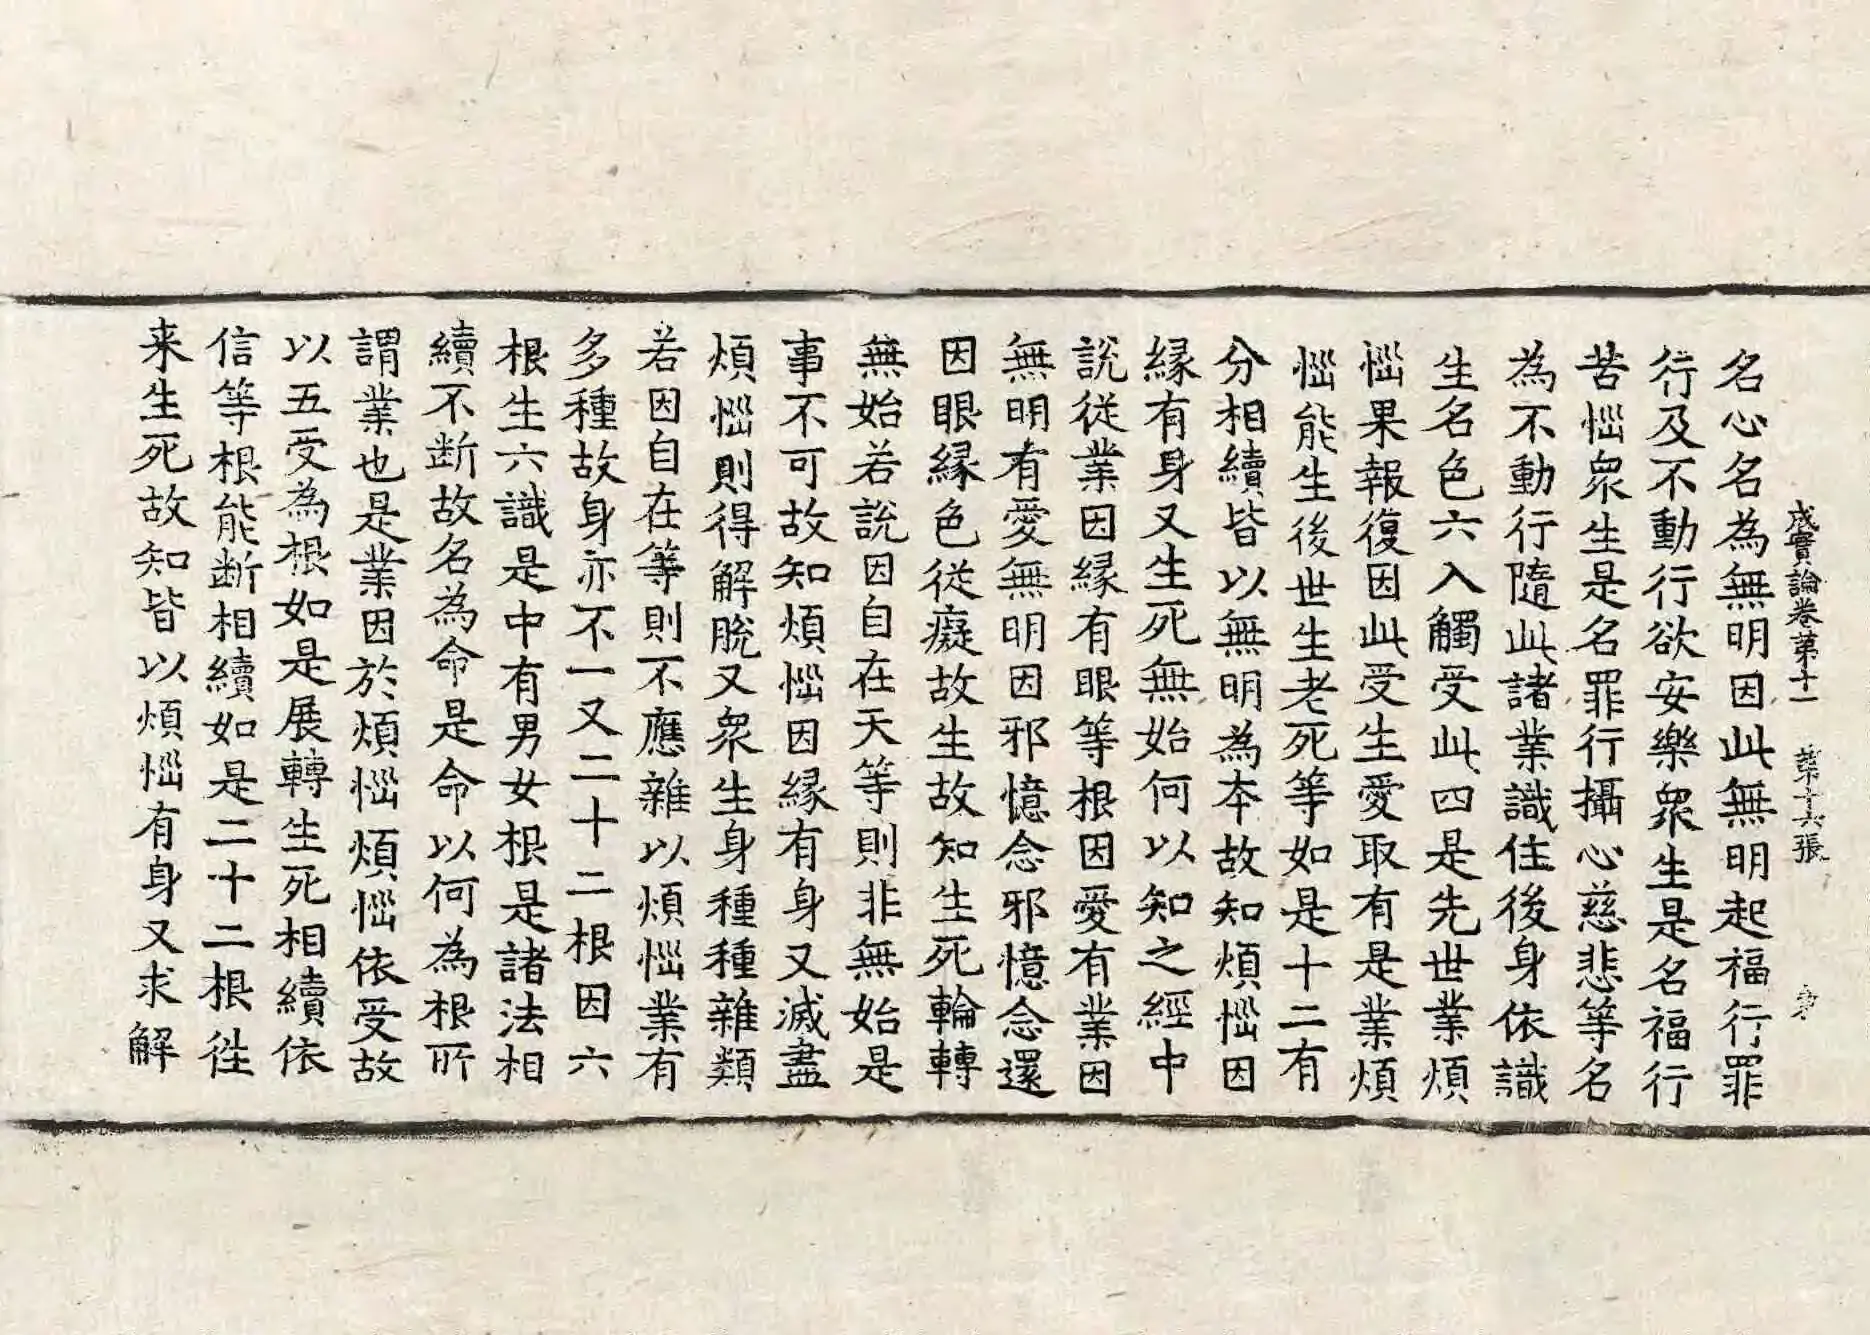 成實論卷第十一 第十六張 寿
名心名為無明因此無明起福行罪
行及不動行欲安樂衆生是名福行
苦惱衆生是名罪行攝心慈悲等名
為不動行隨此諸業識住後身依識
生名色六入觸受此四是先世業煩
惱果報復因此受生愛取有是業煩
惱能生後世生老死等如是十二有
分相續皆以無明為本故知煩惱因
縁有身又生死無始何以知之經中
說從業因縁有眼等根因愛有業因
無明有愛無明因邪憶念邪憶念還
因眼縁色從癡故生故知生死輪轉
無始若說因自在天等則非無始是
事不可故知煩惱因縁有身又滅盡
煩惱則得解脫又衆生身種種雜類
若因自在等則不應雜以煩惱業有
多種故身亦不一又二十二根因六
根生六識是中有男女根是諸法相
續不断故名為命是命以何為根所
謂業也是業因於煩惱煩惱依受故
以五受為根如是展轉生死相續依
信等根能断相續如是二十二根徃
来生死故知皆以煩惱有身又求解